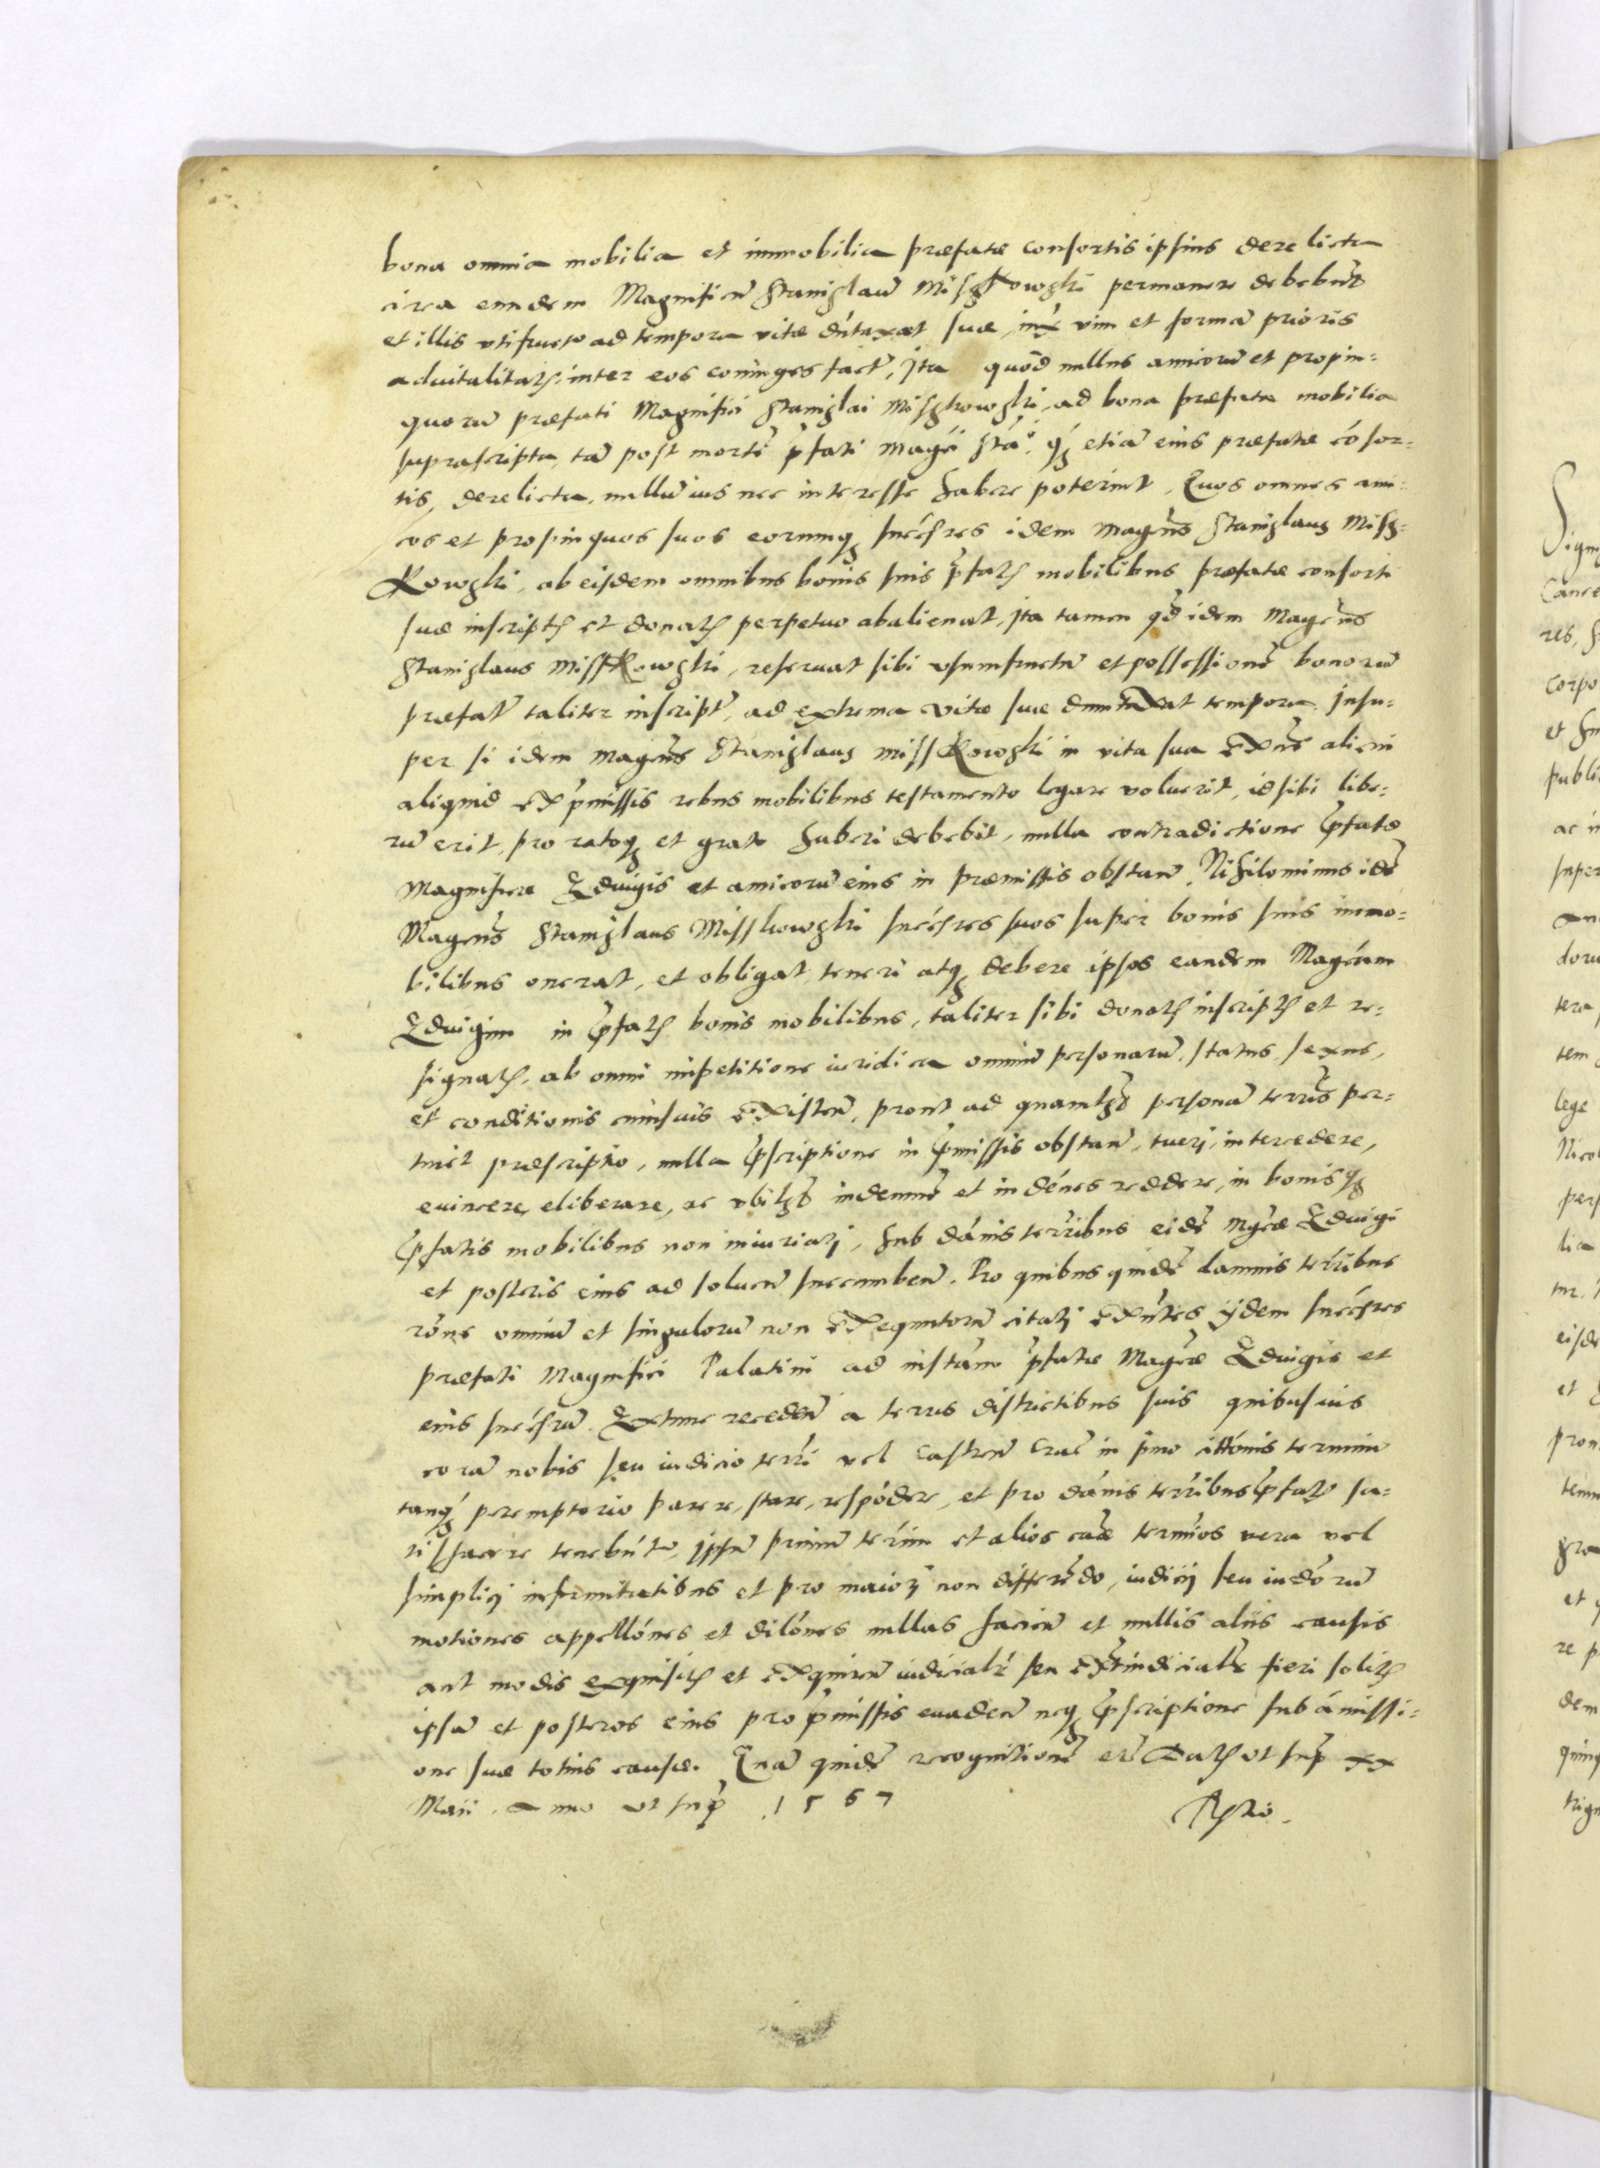 bona omnia mobilia et immobilia præfatæ consortis ipsius derelicta
circa eundem Magnificũ Stanislaũ Miskowski permanere debebũt
et illis utifructo ad tempora vitæ dũtaxat suæ, iux vim et formã prioris
aduitalitatis inter eos coniuges fact, Ita quod nullus amicorũ et propin-
quorũ præfati Magnifici Stanislai Miskowski, ad bona præfata mobilia
suprascripta, tã post mortẽ pfati Magci Sta: qz etiã eius præfatæ cõsor-
tis, derelicta, nullũ ius nec interesse habere poterint. Quos omnes ami-
cos et propinquos suos eorumqz succesres idem Magcus Stanislaus Mis-
kowski, ab eisdem omnibus bonis suis pfatis mobilibus præfatæ consorti
suæ inscriptis et donatis perpetuo abalienat, Ita tamen qd idem Magcus
Stanislaus Misskowski, reseruat sibi usumfructũ et possessionẽ bonorũ
præfat taliter inscript, ad extrema vitæ suæ duntaxat tempora. Insu-
per si idem Magcus Stanislaus Misskowski in vita sua exñs alicui
aliquid ex pmissis rebus mobilibus testamento legare voluerit, id sibi libe-
rũ erit, pro ratoqz et grato haberi debebit, nulla contradictione pfatæ
Magnificæ Eduigis et amicorũ eius in præmissis obstañ. Nihilominus idẽ
Magcus Stanislaus Misskowski succesres suos super bonis suis immo-
bilibus onerat, et obligat, teneri atqz debere ipsos eandem Magcam
Eduigim in pfatis bonis mobilibus, taliter sibi donatis inscriptis et re-
signatis, ab omni impetitione iuridica omniũ personarũ, status, sexus,
et conditionis cuiusuis existeñ, prout ad quamlibet personã terrus per-
tinet præscriptio, nulla pscriptione in pmissis obstañ, tueri, intercedere,
euincere, eliberare, ac ubilibet indemnẽ et indẽnes reddere, in bonisqz
pfatis mobilibus non iniuriari, sub dãnis terribus eidẽ Mgcæ Eduigi
et posteris eius ad soluen succumbeñ. Pro quibus quidẽ damnis terribus
rõne omniũ et singulorũ non exequutorũ citati exñtes ijdem succesres
præfati Magnifici Palatini ad instam pfatæ Magcæ Eduigis et
eius succesrũ. Extunc recedeñ a terris districtibus suis quibusuis
corã nobis seu iudicio terri vel castreñ Crac in pmo citõnis termino
tanqz peremptorio parere, stare, respõdere, et pro dãnis terribus pfatis sa-
tisfacere tenebũtur, Ipsũ primũ terim et alios cuæ termios vera vel
simplici infirmitatibus et pro maiori non differẽdo, iudicij seu iudõrũ
motiones appellõnes et dilõnes nullas facieñ et nullis aliis causis
aut modis exquisitis et exquireñ iudicialr seu extraiudicialr fieri solitis
ipsã et posteros eius pro pmissis euadeñ neqz pscriptione sub amissi-
one suæ totius causæ. Quã quidẽ recognitionẽ etc Datis ut sup xx
Maii Anno ut sup 1567